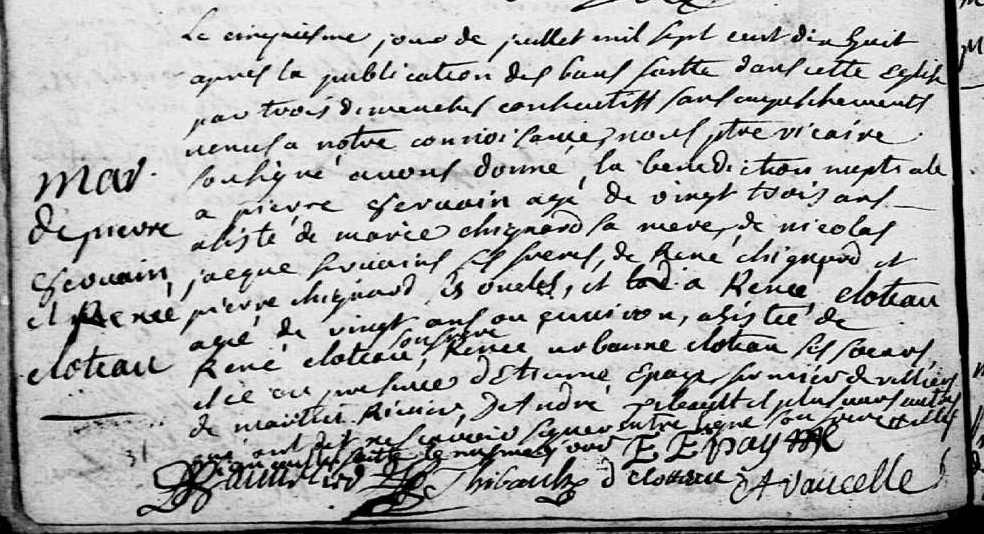 mar.
de pierre
Servain
et Renée
cloteau
Le cinquiesme jour de juillet mil sept cent dix huit
apres la publication des bans faitte dans cette Eglise
par trois dimenches consecutifs sans empeschements
venus a notre connoissance, nous ptre vicaire
soussigné avons donné la benediction nuptiale
a pierre Servain agé de vingt trois ans
asisté de marie chignard sa mere, de nicolas
jacque servains ses freres, de René chignard et
pierre chignard ses oncles, et a Renée cloteau
agé de vingt ans ou environ, asistée de
René cloteau son frere, Renée urbanne cloteau ses soeurs,
et en presence d'Etienne Epay fermier de villiers
de martin Riviere, De André Thibault et plusieurs autres
qui ont dit ne scavoir signer entre signé son frere
E Epay
Thibault d cloteau A vaucelle